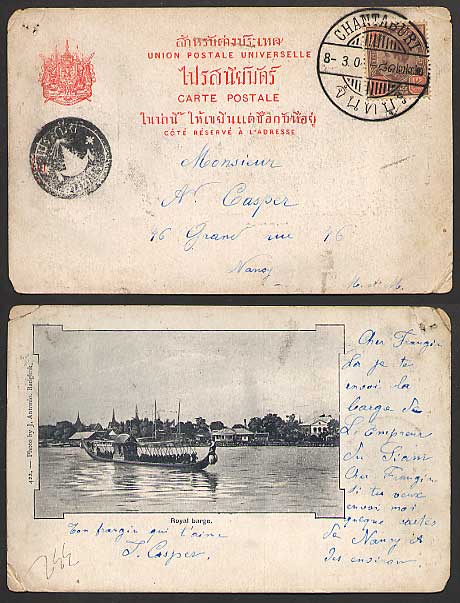 สำหรับต่างประเทศ
UNION POSTALE UNIVERSELLE
ไปรสนียบัตร์
CARTE POSTALE
ให้เขียนแต่ชื่อกับที่อยู่
CÔTÉ RÉSERVÉ À L'ADRESSE
CHANTABURI
8- 3.0
Monsieur
A. Casper
46 Grand rue 46
Nancy
M. et M.
422. — Photo by J. Antonio, Bangkok.
Royal barge.
Cher Frangin
La je te
envoi la
barge de
L'Empreur
du Siam
Cher Frangin
si tu veux
envoi moi
quelque cartes
de Nancy et
des environ.
Ton frangin qui t'aime
J. Casper.